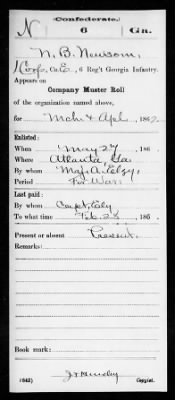 Confederate.
N 6 Ga.
N. B. Newsom,
Corp, Co. E, 6 Reg't Georgia Infantry.
Appears on
Company Muster Roll
of the organization named above,
for Mch & Apl, 186
Enlisted:
When May 27, 186
Where Atlanta, Ga.
By whom Maj. A. Elzy,
Period For War.
Last paid:
By whom Capt. Ely
To what time Feb. 28, 186
Present or absent Present.
Remarks:
Book mark:
(642) Copyist.